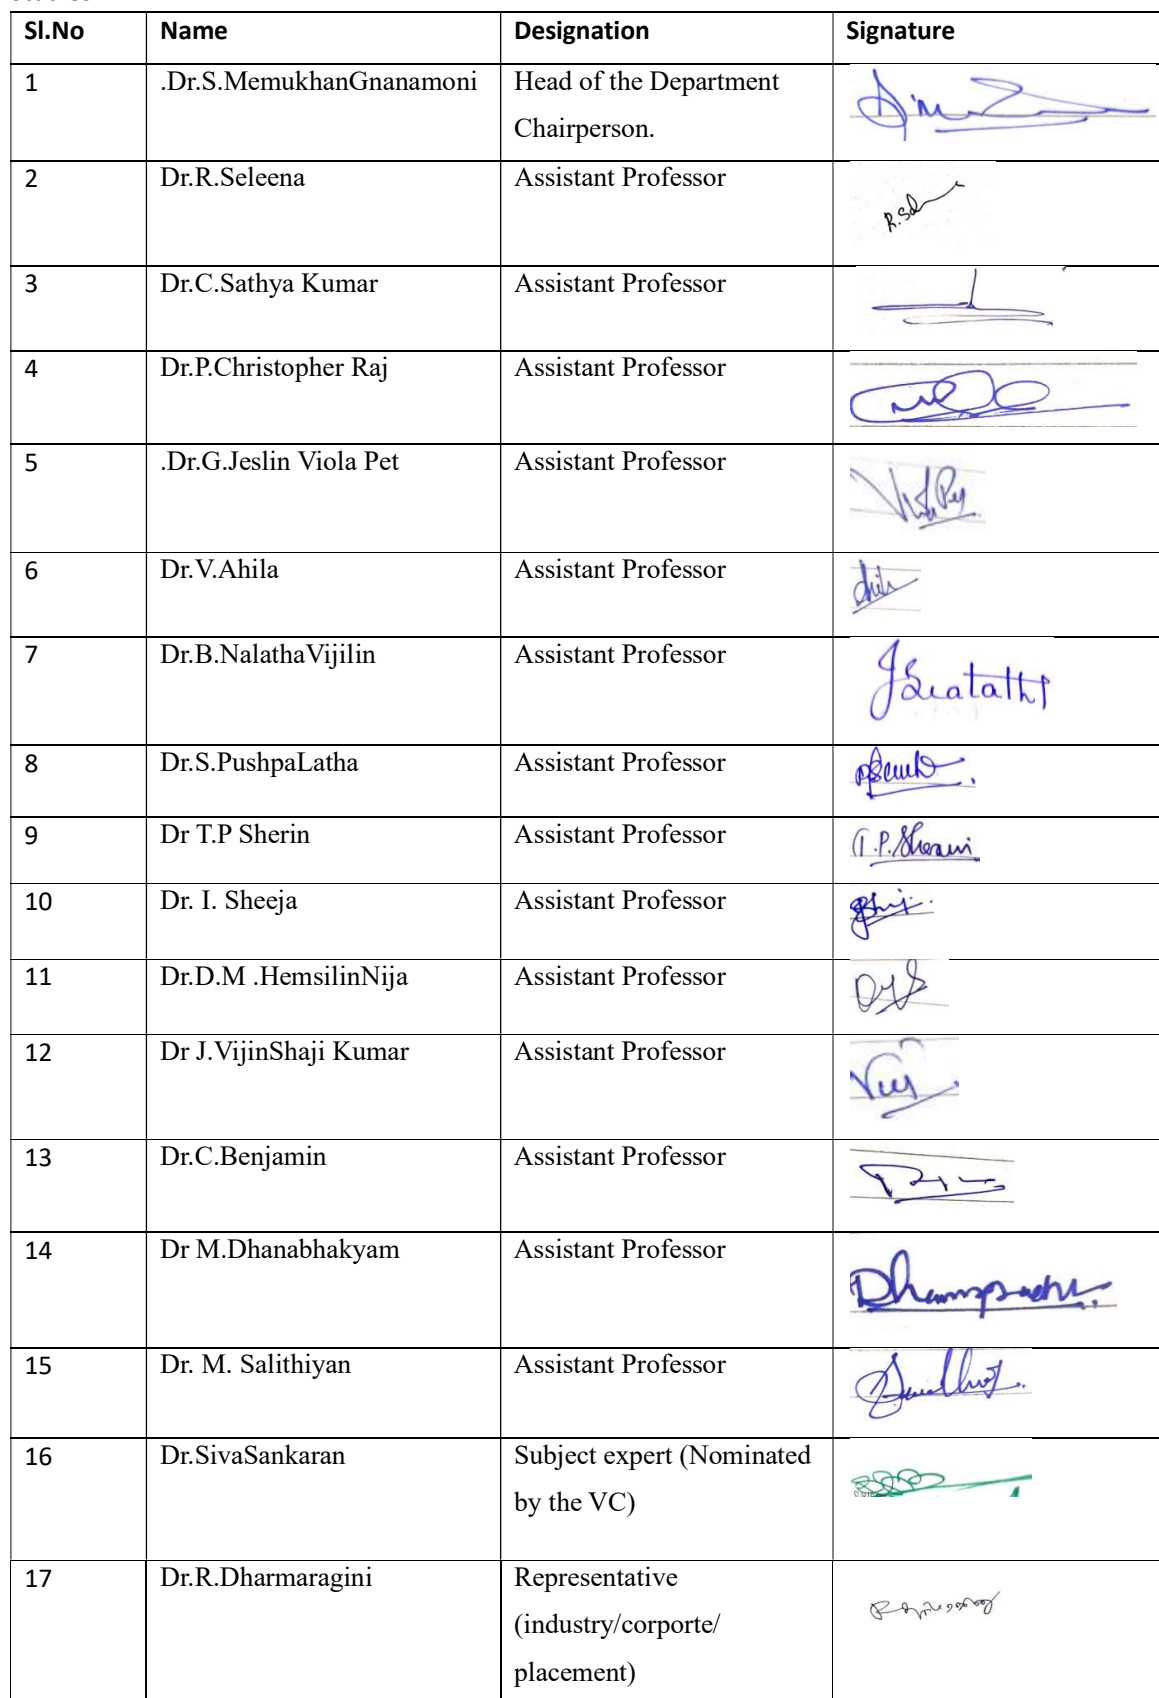 Sl.No Name Designation Signature
1 .Dr.S.MemukhanGnanamoni Head of the Department
Chairperson.
2 Dr.R.Seleena Assistant Professor
3 Dr.C.Sathya Kumar Assistant Professor
4 Dr.P.Christopher Raj Assistant Professor
5 .Dr.G.Jeslin Viola Pet Assistant Professor
6 Dr.V.Ahila Assistant Professor
7 Dr.B.NalathaVijilin Assistant Professor
8 Dr.S.PushpaLatha Assistant Professor
9 Dr T.P Sherin Assistant Professor
10 Dr. I. Sheeja Assistant Professor
11 Dr.D.M .HemsilinNija Assistant Professor
12 Dr J.VijinShaji Kumar Assistant Professor
13 Dr.C.Benjamin Assistant Professor
14 Dr M.Dhanabhakyam Assistant Professor
15 Dr. M. Salithiyan Assistant Professor
16 Dr.SivaSankaran Subject expert (Nominated
by the VC)
17 Dr.R.Dharmaragini Representative
(industry/corporte/
placement)